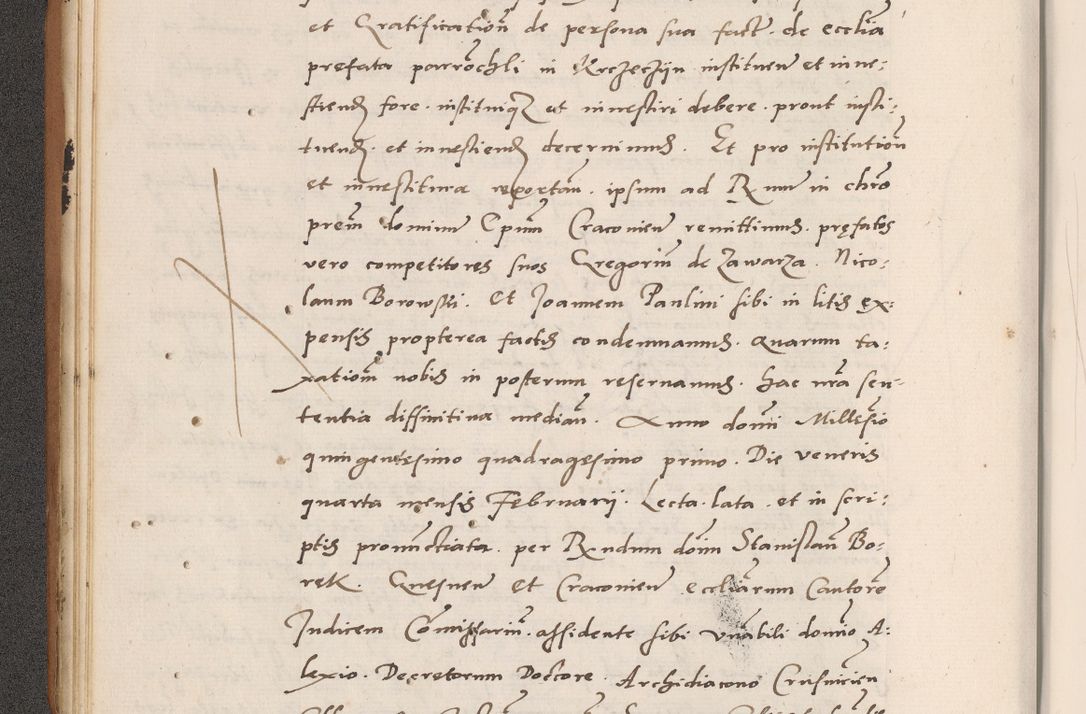 et Gratification̄ de persona sua fact̄. de ecclīa
prefata parrōchli in Krczeczijn instituen̄ et inue-
stiend̄ fore. instituiqʒ et inuestiri debere. prout insti-
tuend̄. et inuestiend̄ decernimus. Et pro institution̄
et inuestitura reportan̄. ipsum ad R mum in chrō
prem̄ dominum Epum̄ Cracovien̄ remittimus. prefatos
vero competitores suos Gregoriū de Zawarza. Nico-
laum Borowski. Et Joannem Paulini sibi in litis ex-
pensis propterea factis condemnamus. Quarum ta-
xationem̄ nobis in posterum reservamus. Hac nrā sen-
tentia diffinitiva median̄. Anno domīni Millesīo
quingentesimo quadragesimo primo. Die veneris
quarta mensis Februarij. Lecta. lata. et in scri-
ptis pronunctiata. per R ndum dom̄ Stanislaū Bo-
rek. Gnesnen̄ Et Cracovien̄ eccliārum Cantorē
Judicem Com̄issariū. assidente sibi Vnābili dom̄io A-
lexio. Decretorum Doctore. Archidiacono Crusuicien̄